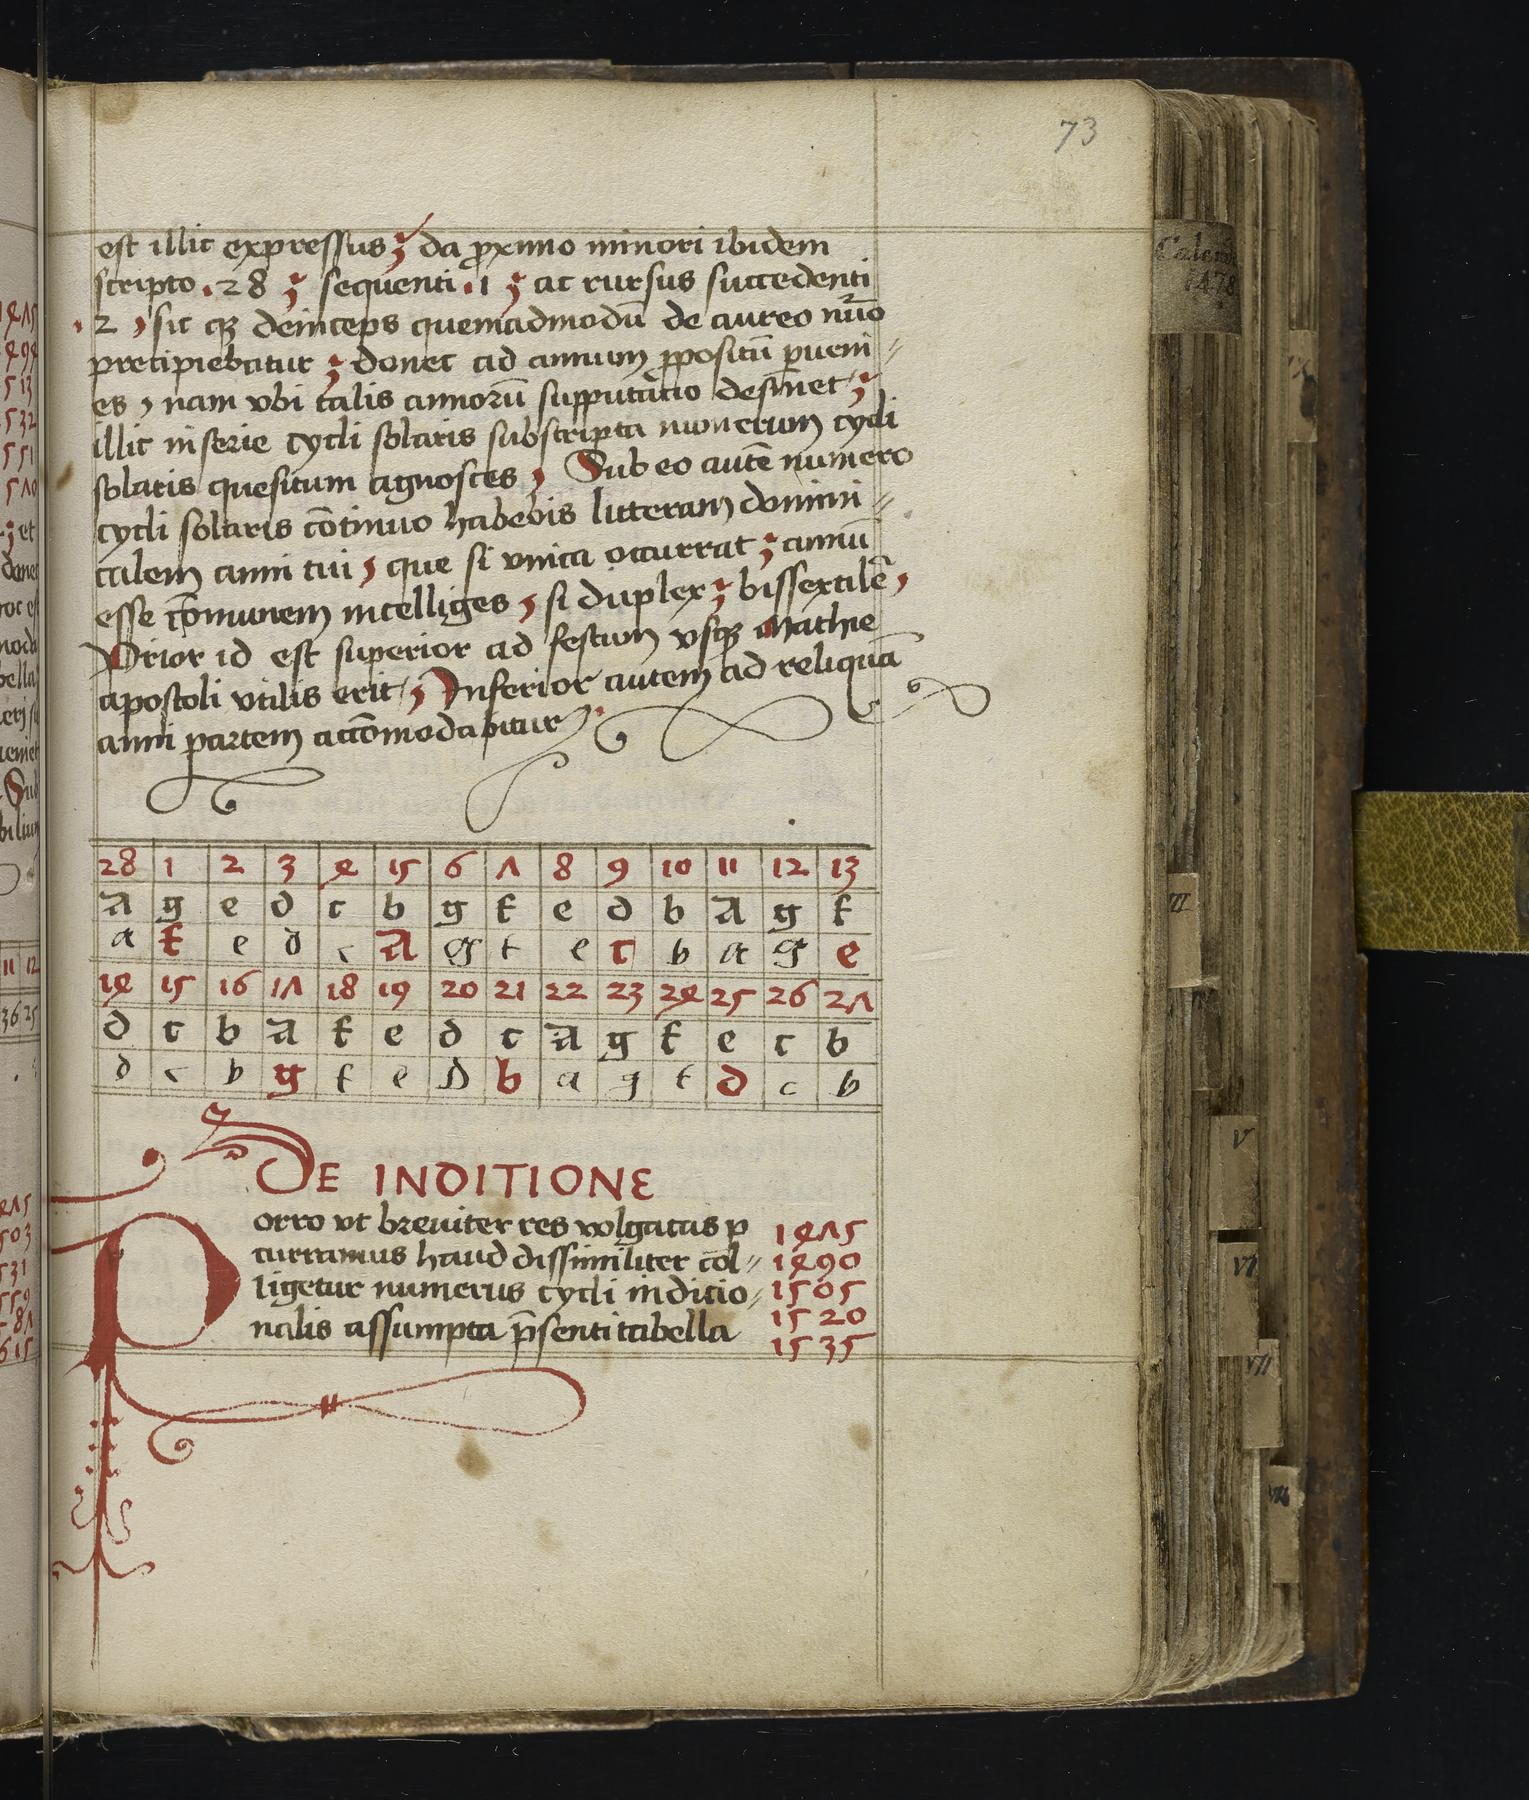 73
est illic expressus ; da ꝓximo minori ibidem
scripto . 28 ; sequenti . 1 ; ac rursus succedenti
. 2 , sic qꝫ deinceps quemadmodū de aureo nūo
precipiebatur ; donec ad annum ꝓpositū ꝑueni //
es , nam vbi talis annorū supputatio desinet ;
illic in serie cycli solaris subscripta numerum cycli
solaris quesitum agnosces , Sub eo autē numero
cycli solaris cōtinuo habebis litteram domini //
calem anni tui , que si vnica occurrat ; annū
esse cōmunem intelliges , si duplex ; bissextilē ,
Prior id est superior ad festum vsqꝫ Mathie
apostoli vtilis erit , Inferior autem ad reliquā
anni partem accōmodabitur .
28 1 2 3 4 15 6 7 8 9 10 11 12 13
A g e d c b g f e d b A g f
a f e d c A g f e c b a g e
14 15 16 17 18 19 20 21 22 23 24 25 26 27
d c b A f e d c A g f e c b
d c b g f e D b a g f d c b
DE INDITIONE
Porro vt breuiter res volgatas ꝑ 1475
curramus haud dissimiliter col // 1490
ligetur numerus cycli inditio // 1505
nalis assumpta p̄senti tabella 1520
1535
1478
IX
III
V
VI
VII
11 12
36 25